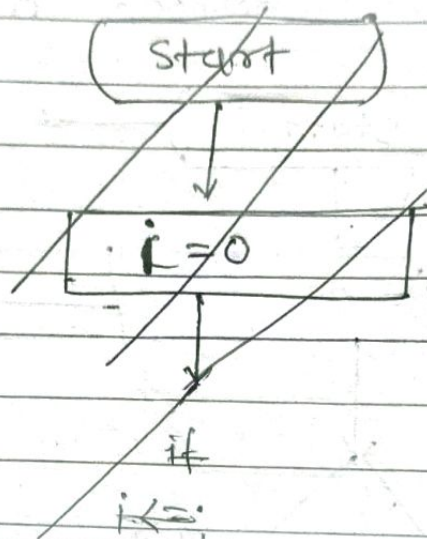 Start
i = 0
if
i<=